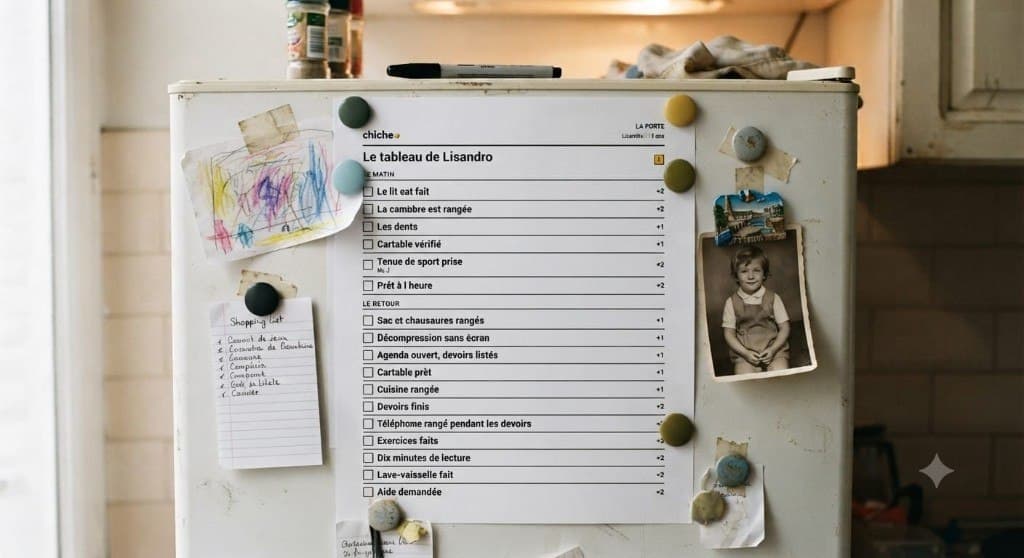 chiche
LA PORTE
Le tableau de Lisandro
LE MATIN
Le lit eat fait +2
La cambbre est rangée +2
Les dents +1
Cartable vérifié +1
Tenue de sport prise +2
Prêt à l heure +2
LE RETOUR
Sac et chausaures rangés +1
Décompression sans écran +1
Agenda ouvert, devoirs listés +1
Cartable prèt +1
Cuisine rangée +1
Devoirs finis +2
Téléphome rangé pendant les devoirs
Exercices faits +2
Dix minutes de lecture +2
Lave-vaisselle fait +2
Aide demandée +2
Shopping List